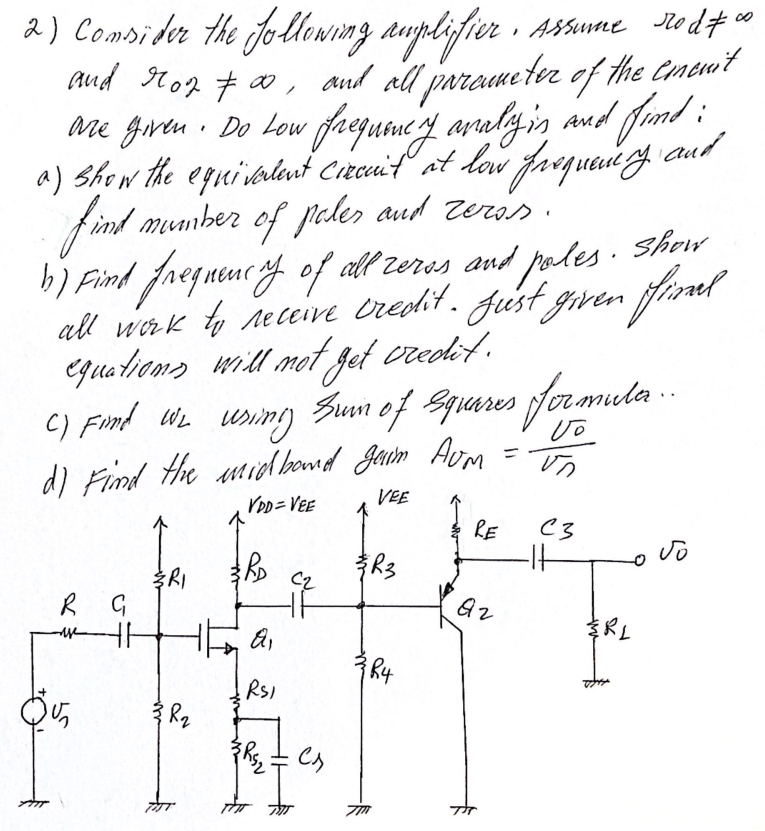 2) Consider the following amplifier. Assume rod ≠ ∞
and ro2 ≠ ∞, and all parameter of the circuit
are given. Do Low frequency analysis and find:
a) Show the equivalent circuit at low frequency and
find number of poles and zeros.
b) Find frequency of all zeros and poles. Show
all work to receive credit. Just given final
equations will not get credit.
c) Find ωL using Sum of Squares formula..
d) Find the midband gain AvM = vo/vs
VDD=VEE
VEE
RE
C3
vo
R1
RD
C2
R3
R
C1
Q1
Q2
RL
RS1
R4
vs
+
-
R2
RS2
Cs